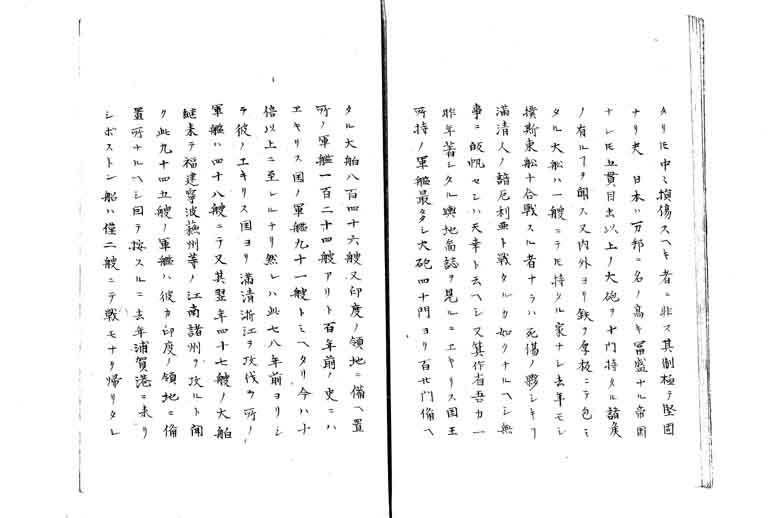 タリ𪜈中々損傷スヘキ者ニ非ス其制極テ堅固
ナリ夫日本ハ万邦ニ名ノ高キ冨盛ナル帝国
ナレ𪜈五貫目玉以上ノ大砲ヲ十門持タル諸矦
ノ有ルヿヲ聞ス又内外ヨリ鉄ヲ厚板ニテ包ミ
タル大船ハ一艘ニテモ持タル家ナシ去年モシ
撲斯東船ト合戦スル者ナラハ死傷ノ夥シキヿ
満清人ノ諳厄利亜ト戦タルカ如クナルヘシ無
事ニ皈帆セシハ天幸ト云ヘシ又箕作省吾カ一
昨年著シタル輿地畐誌ヲ見ルニエキリス国王
所持ノ軍艦最タシ大砲四十門ヨリ百廿門備ヘ
タル大舶八百四十六艘又印度ノ領地ニ備ヘ置
所ノ軍艦一百二十四艘アリト百年前ノ史ニハ
エキリス国ノ軍艦九十一艘トミヘタリ今ハ十
倍以上ニ至レルナリ然レハ此七八年前ヨリシ
テ彼ノエキリス国ヨリ満清浙江ヲ攻伐ヲ所ノ
軍艦ハ四十八艘ニテ又其翌年四十七艘ノ大舶
継来テ福建寧波蘓州等ノ江南諸州ヲ攻ルト聞
ク此九十四五艘ノ軍艦ハ彼カ印度ノ領地ニ備
置所ナルヘシ回テ按スルニ去年浦賀港ニ来リ
シボストン船ハ僅二艘ニテ戦モナク帰リタレ